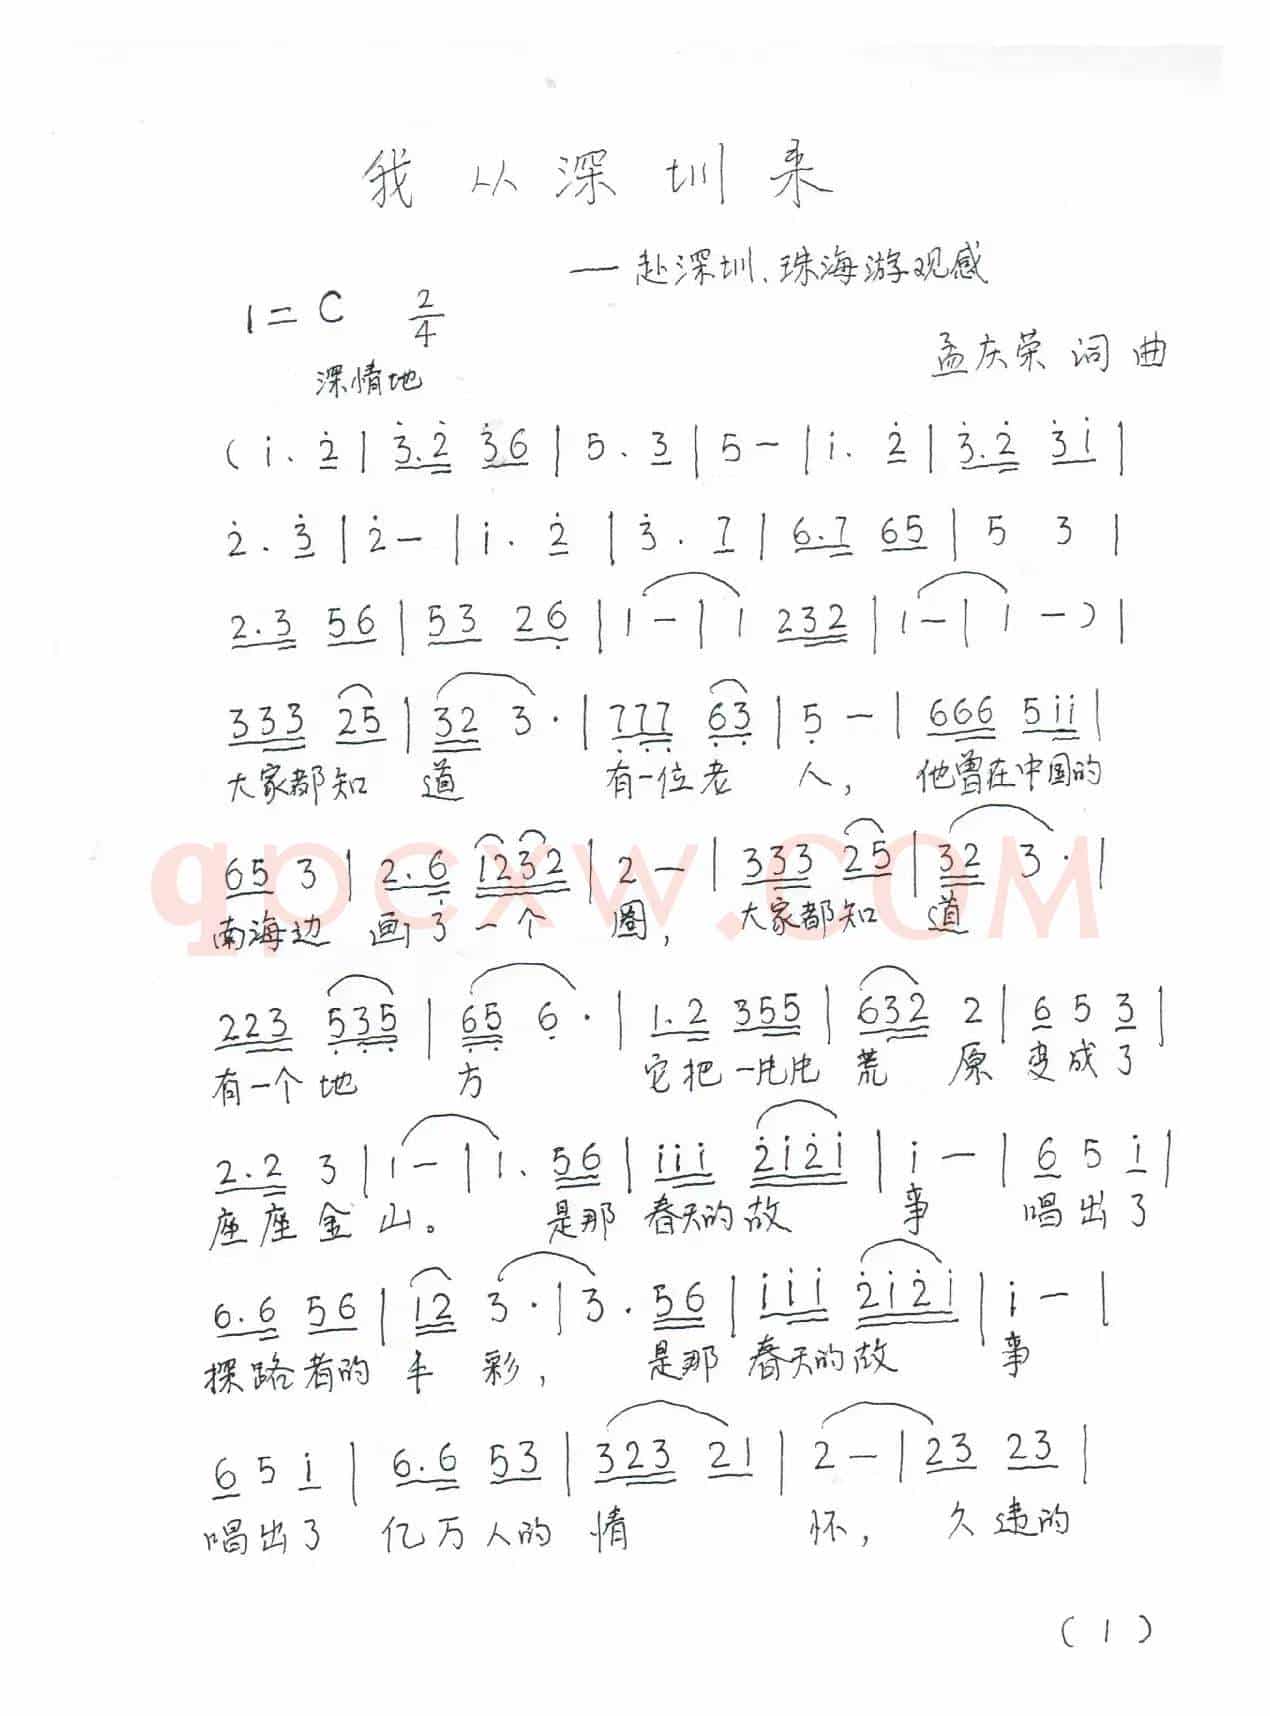 我从深圳来
—赴深圳、珠海游观感
1=C 2/4
孟庆荣 词 曲
深情地
(i. 2̇ | 3̇. 2̇ 3̇6 | 5. 3 | 5 - | i. 2̇ | 3̇. 2̇ 3̇i |
2̇. 3̇ | 2̇ - | i. 2̇ | 3̇. 7 | 6.7 65 | 5 3 |
2.3 56 | 53 26̣ | 1 - | 1 232 | 1 - | 1 -) |
333 25 | 32 3. | 7̣7̣7̣ 6̣3̣ | 5̣ - | 666 5ii |
大家都知 道 有一位老 人, 他曾在中国的
65 3 | 2.6̣ 1232 | 2 - | 333 25 | 32 3. |
南海边 画了一个 圈, 大家都知 道
qpcxw.COM
223 5̣3̣5̣ | 6̣5̣ 6̣. | 1.2 355 | 632 2 | 6 5 3 |
有一个地 方 它把一片片 荒 原 变成了
2.2 3 | 1 - | 1. 56 | iii 2̇i2̇i | i - | 6 5 i |
座座金山。 是那 春天的故 事 唱出了
6.6 56 | 12 3. | 3. 56 | iii 2̇i2̇i | i - |
探路者的 丰 彩, 是那 春天的故 事
6 5 i | 6.6 53 | 323 21 | 2 - | 23 23 |
唱出了 亿万人的 情 怀, 久违的
(1)